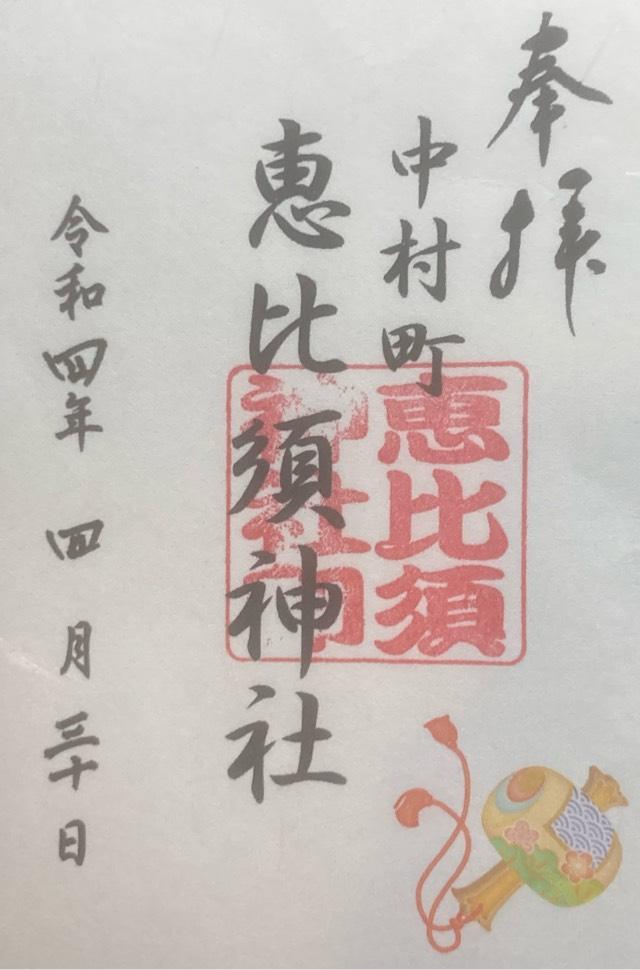 奉拝
中村町
恵比須神社
恵比須
神社印
令和四年 四月三十日